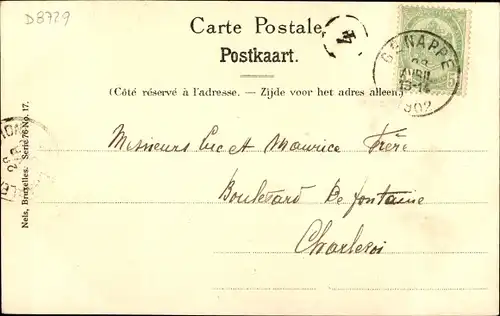 D8729
Carte Postale
Postkaart.
4
GENAPPE
AVRIL
13-14
1902
5
(Côté réservé à l'adresse. — Zijde voor het adres alleen.)
Messieurs Luc et Maurice Frère
Boulevard De fontaine
Charleroi
Nels, Bruxelles. Serie 76 No. 17.